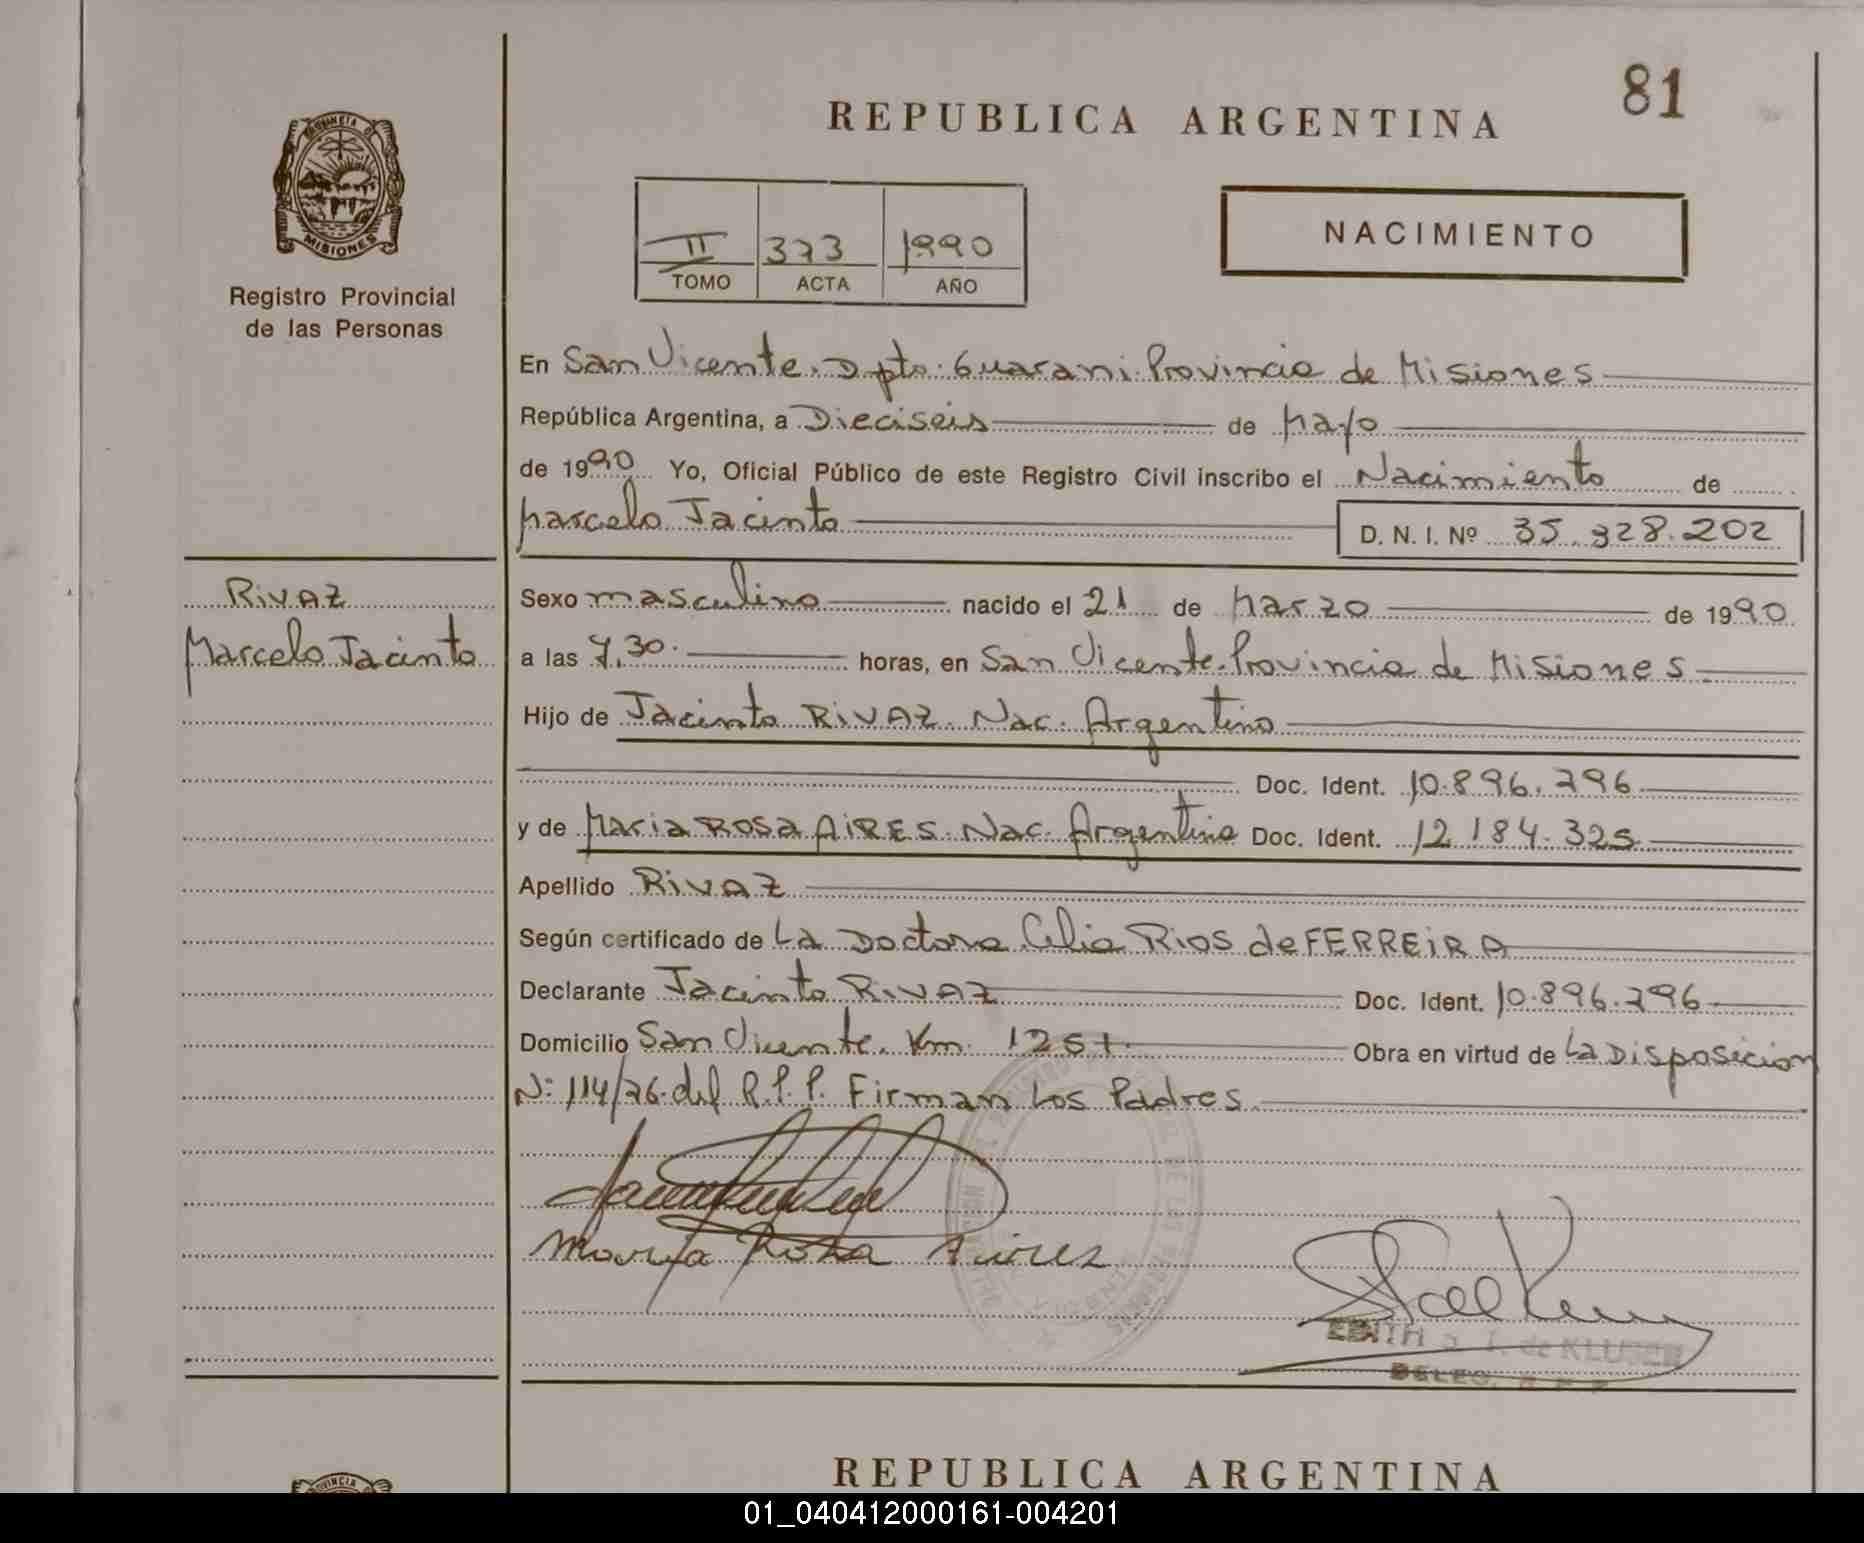 81
REPUBLICA ARGENTINA
PROVINCIA DE
MISIONES
Registro Provincial
de las Personas
II 373 1990
TOMO ACTA AÑO
NACIMIENTO
En San Vicente. Dpto. Guarani. Provincia de Misiones
República Argentina, a Dieciseis de Mayo
de 1990 Yo, Oficial Público de este Registro Civil inscribo el Nacimiento de
Marcelo Jacinto
D. N. I. Nº 35.328.202
RIVAZ
Marcelo Jacinto
Sexo masculino nacido el 21 de Marzo de 1990
a las 7,30. horas, en San Vicente. Provincia de Misiones
Hijo de Jacinto RIVAZ. Nac. Argentino
Doc. Ident. 10.896.796
y de Maria ROSA AIRES. Nac. Argentina Doc. Ident. 12.184.325
Apellido RIVAZ
Según certificado de La Doctora Celia RIOS de FERREIRA
Declarante Jacinto RIVAZ Doc. Ident. 10.896.796
Domicilio San Vicente. Km. 1251. Obra en virtud de La Disposicion
Nº 114/76. del R.P.P. Firman Los Padres
Maria Rosa Aires
de KLUGER
DELEG.
REPUBLICA ARGENTINA
PROVINCIA
01_040412000161-004201